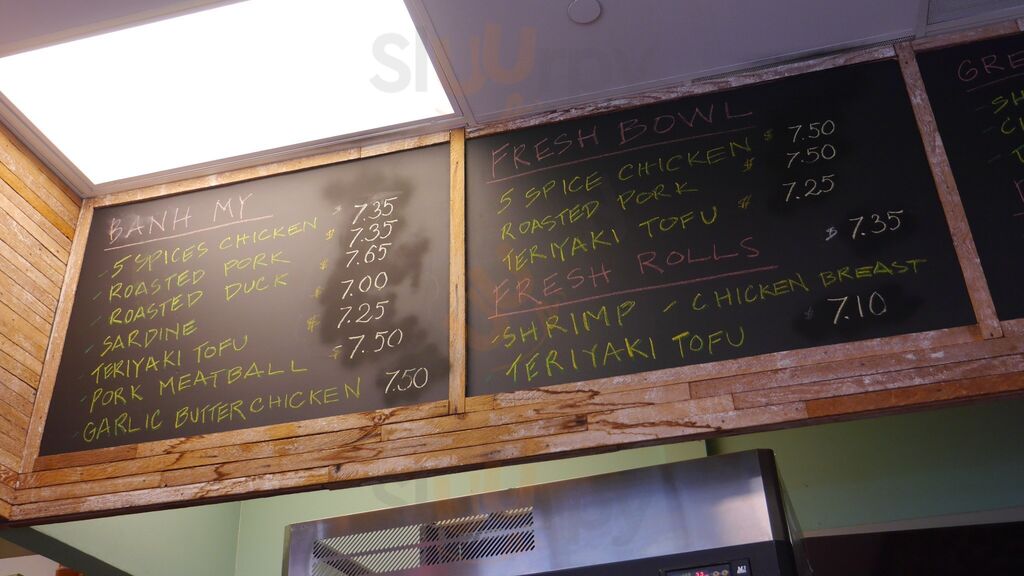 BANH MY
5 SPICES CHICKEN $ 7.35
ROASTED PORK 7.35
ROASTED DUCK $ 7.65
SARDINE 7.00
TERIYAKI TOFU $ 7.25
PORK MEATBALL $ 7.50
GARLIC BUTTER CHICKEN 7.50
FRESH BOWL
5 SPICE CHICKEN $ 7.50
ROASTED PORK $ 7.50
TERIYAKI TOFU $ 7.25
FRESH ROLLS
SHRIMP - CHICKEN BREAST $ 7.35
TERIYAKI TOFU 7.10
GRE
SH